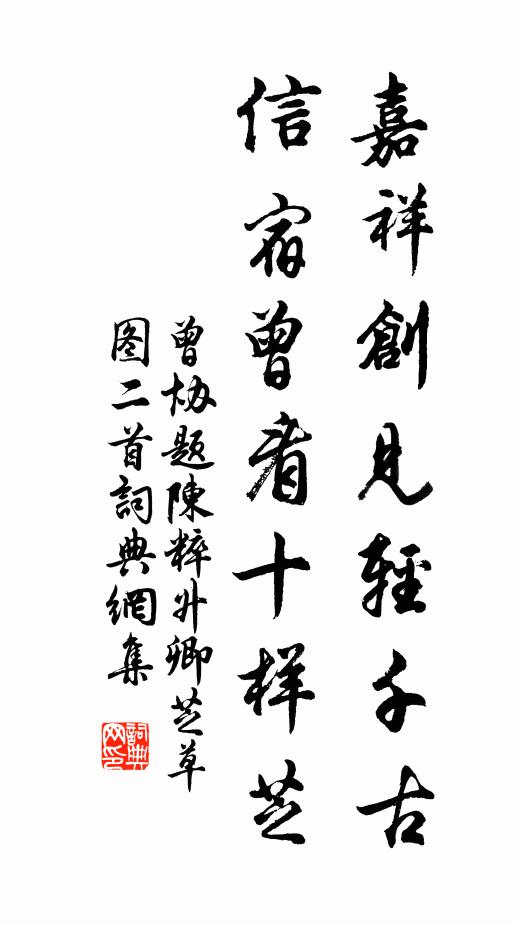 嘉祥創見輕千古
信宿曾看十样芝
曾协题陳粹升卿芝草
图二首詞典網集
詞典网印